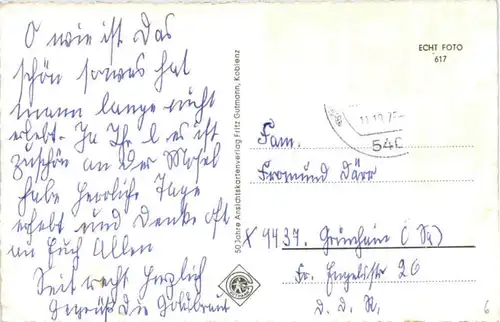 O wie ist das
schön sowas hat
mann lange nicht
erlebt. Ja Ihr l. es ist
zuschön an der Mosel
habe herrliche Tage
erlebt und denke oft
an Euch Allen
Seit recht herzlich
gegrüß die Goldbraut
50 Jahre Ansichtskartenverlag Fritz Gutmann, Koblenz
ECHT FOTO
617
11.10.7
540
Fam.
Fromund Dörr
X 9437. Grünhain (Sa)
Fr. Engelsstr 26
D. D. R.
6